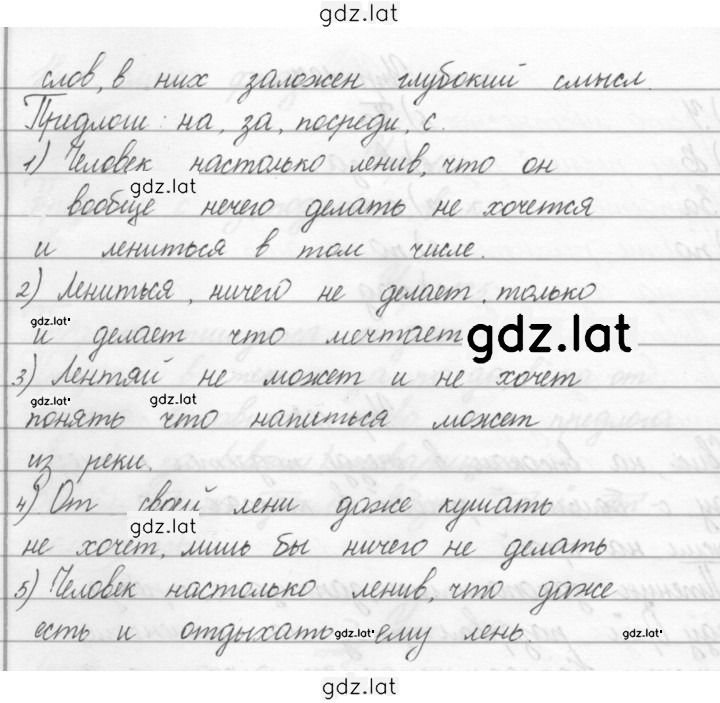 gdz.lat
слов, в них заложен глубокий смысл.
Предлоги: на, за, посреди, с.
1) Человек настолько ленив, что он
gdz.lat
вообще нечего делать не хочется
и лениться в том числе.
2) Лениться, ничего не делает, только
gdz.lat
и делает что мечтает
gdz.lat
3) Лентяй не может и не хочет
gdz.lat gdz.lat
понять что напиться может
из реки.
4) От своей лени даже кушать
gdz.lat
не хочет, лишь бы ничего не делать
5) Человек настолько ленив, что даже
есть и отдыхать gdz.lat ему лень gdz.lat
gdz.lat